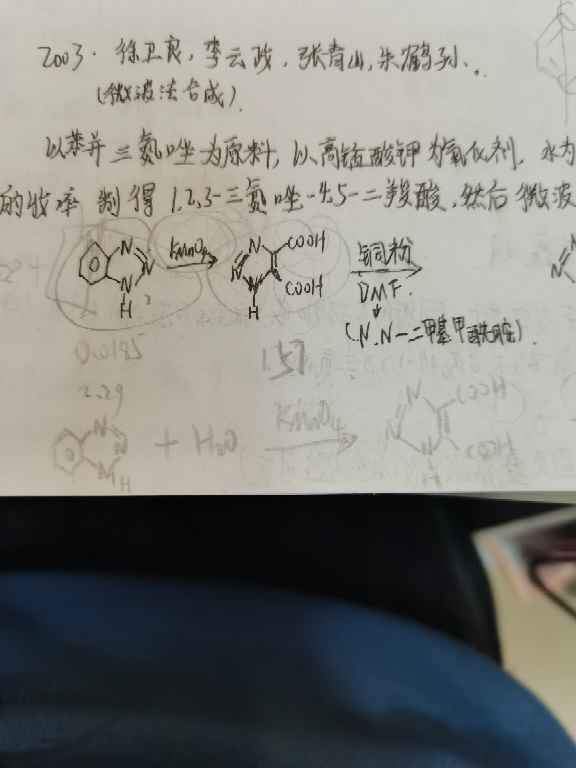 2003. 徐卫良, 李云政, 张青山, 朱鹤孙..
(微波法合成).
以苯并三氮唑为原料, 以高锰酸钾为氧化剂, 水为
的收率 制得 1,2,3-三氮唑-4,5-二羧酸, 然后微波
N N N H KMnO4 N N N H COOH COOH 铜粉 DMF.
(N,N-二甲基甲酰胺).
0.0185 1.57
2.29
N N N H + H2O KMnO4 N N N H COOH COOH